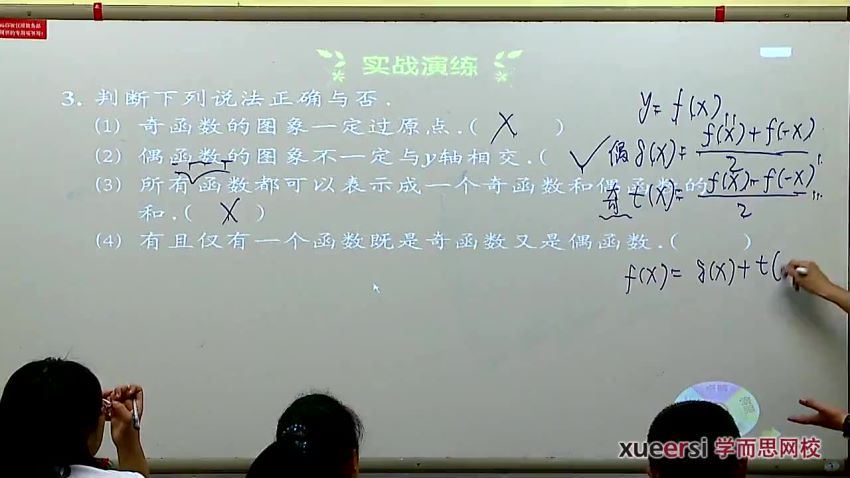 实战演练
3. 判断下列说法正确与否.
(1) 奇函数的图象一定过原点.( X )
(2) 偶函数的图象不一定与y轴相交.( ✓
(3) 所有函数都可以表示成一个奇函数和偶函数的
和.( X )
(4) 有且仅有一个函数既是奇函数又是偶函数.( )
y = f(x)
偶 g(x) = f(x)+f(-x) / 2
奇 t(x) = f(x)-f(-x) / 2
f(x) = g(x)+t(
xueersi 学而思网校